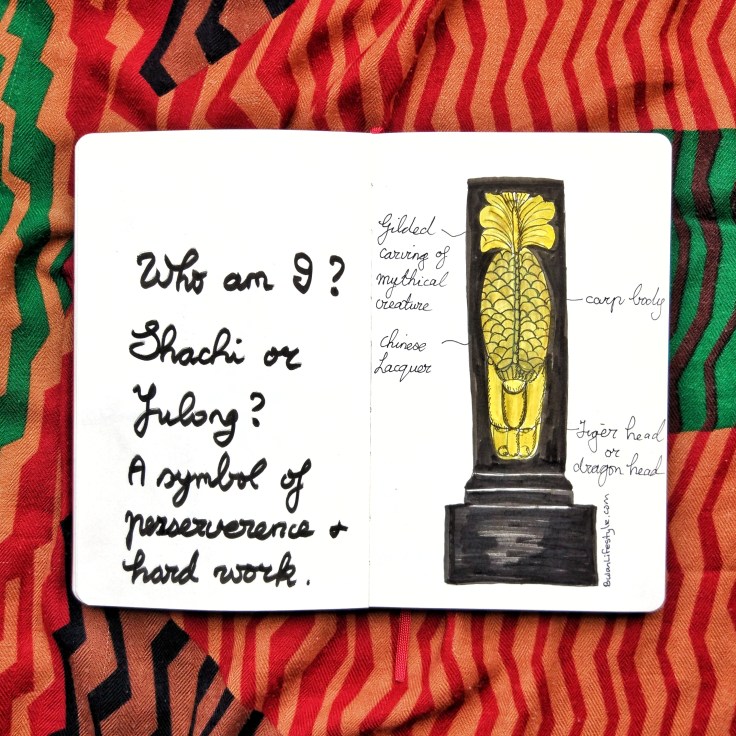 Who am I?
Shachi or
Yulong?
A symbol of
perserverence +
hard work.
Gilded
carving of
mythical
creature
Chinese
Lacquer
carp body
Tiger head
or
dragon head
BulanLifestyle.com